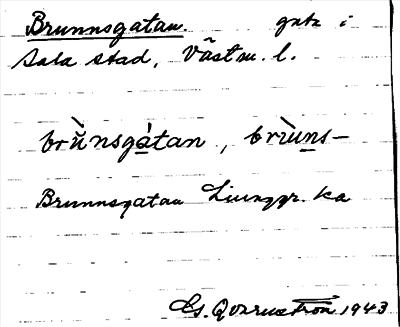 Brunnsgatan gata i
Sala stad, Västm. l.
brùnsgátan, brùuns–
Brunnsgatan Ljunggr. ka
G. Qvarnström 1943